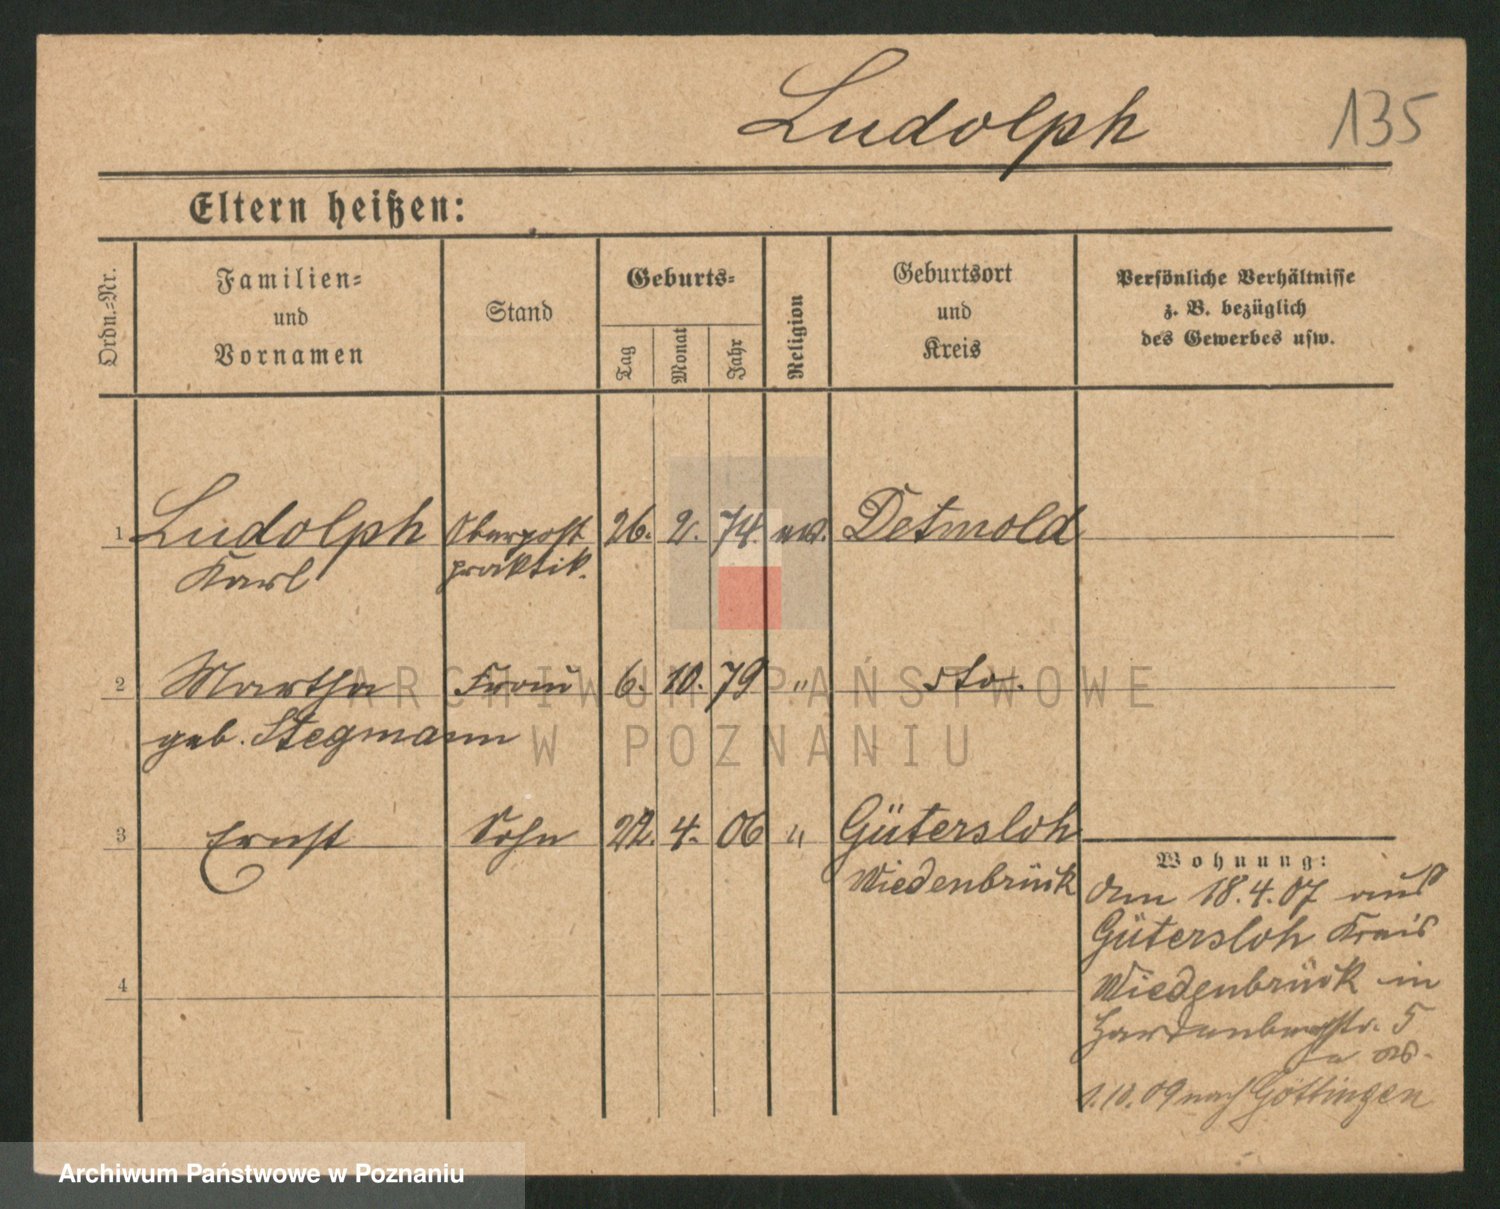 Ludolph 135
Eltern heißen:
Ordn.-Nr.
Familien-
und
Vornamen
Stand
Geburts-
Tag
Monat
Jahr
Religion
Geburtsort
und
Kreis
Persönliche Verhältnisse
z. B. bezüglich
des Gewerbes usw.
1 Ludolph Oberpost 26. 2. 74. ev. Detmold
Karl praktik.
2 Martha Frau 6. 10. 79 " dto.
geb. Stegmann
3 Ernst Sohn 22. 4. 06 " Gütersloh
Wiedenbrück
4
Wohnung:
Am 18.4.07 aus
Gütersloh Kreis
Wiedenbrück in
Hardenbergstr. 5
1.10.09 nach Göttingen
ARCHIWUM PAŃSTWOWE
W POZNANIU
Archiwum Państwowe w Poznaniu